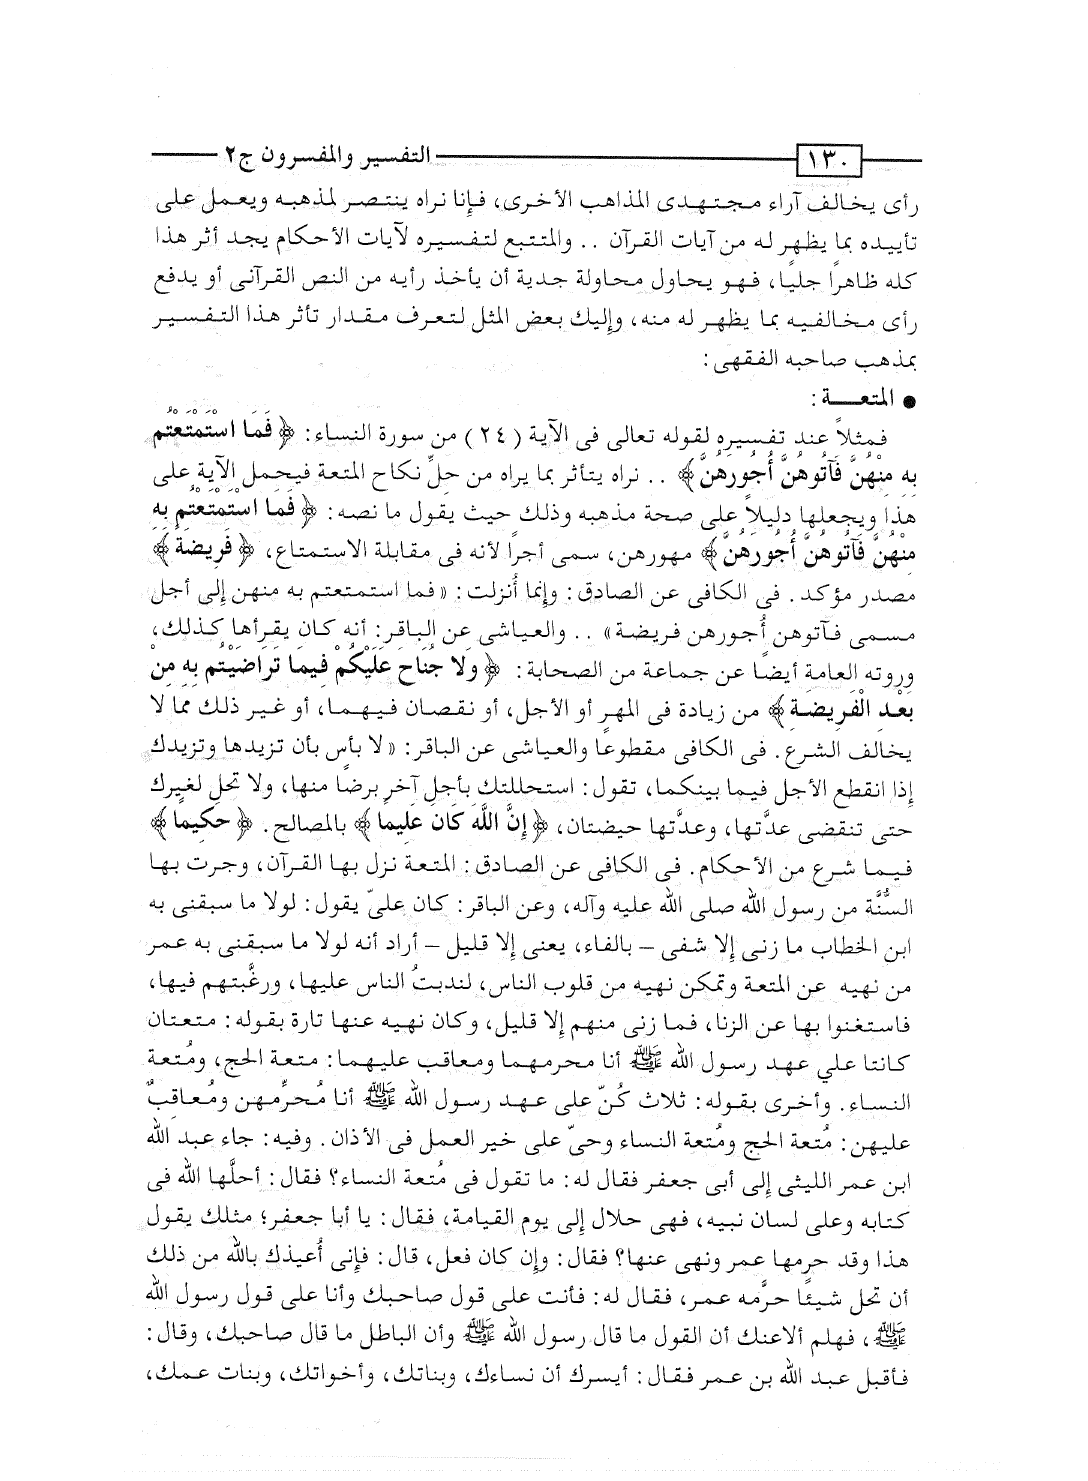 ١٣٠ التفسير والمفسرون ج٢
رأى يخالف آراء مجتهدى المذاهب الأخرى، فإنا نراه ينتصر لمذهبه ويعمل على
تأييده بما يظهر له من آيات القرآن .. والمتتبع لتفسيره لآيات الأحكام يجد أثر هذا
كله ظاهراً جليًا، فهو يحاول محاولة جدية أن يأخذ رأيه من النص القرآنى أو يدفع
رأى مخالفيه بما يظهر له منه، وإليك بعض المثل لتعرف مقدار تأثر هذا التفسير
بمذهب صاحبه الفقهى:
● المتعـــة:
فمثلاً عند تفسيره لقوله تعالى فى الآية (٢٤) من سورة النساء: ﴿فَمَا اسْتَمْتَعْتُم
بِهِ مِنْهُنَّ فَآتُوهُنَّ أُجُورَهُنَّ﴾ .. نراه يتأثر بما يراه من حلِّ نكاح المتعة فيحمل الآية على
هذا ويجعلها دليلاً على صحة مذهبه وذلك حيث يقول ما نصه: ﴿فَمَا اسْتَمْتَعْتُم بِهِ
مِنْهُنَّ فَآتُوهُنَّ أُجُورَهُنَّ﴾ مهورهن، سمى أجراً لأنه فى مقابلة الاستمتاع، ﴿فَرِيضَةً﴾
مصدر مؤكد. فى الكافى عن الصادق: وإنما أُنزلت: «فما استمتعتم به منهن إلى أجل
مسمى فآتوهن أُجورهن فريضة» .. والعياشى عن الباقر: أنه كان يقرأها كذلك،
وروته العامة أيضًا عن جماعة من الصحابة: ﴿وَلا جُنَاحَ عَلَيْكُمْ فِيمَا تَرَاضَيْتُم بِهِ مِنْ
بَعْدِ الْفَرِيضَةِ﴾ من زيادة فى المهر أو الأجل، أو نقصان فيهما، أو غير ذلك مما لا
يخالف الشرع. فى الكافى مقطوعًا والعياشى عن الباقر: «لا بأس بأن تزيدها وتزيدك
إذا انقطع الأجل فيما بينكما، تقول: استحللتك بأجلٍ آخر برضًا منها، ولا تحل لغيرك
حتى تنقضى عدَّتها، وعدَّتها حيضتان، ﴿إِنَّ اللَّهَ كَانَ عَلِيمًا﴾ بالمصالح. ﴿حَكِيمًا﴾
فيما شرع من الأحكام. فى الكافى عن الصادق: المتعة نزل بها القرآن، وجرت بها
السُّنَّة من رسول الله صلى الله عليه وآله، وعن الباقر: كان علىّ يقول: لولا ما سبقنى به
ابن الخطاب ما زنى إلا شفى – بالفاء، يعنى إلا قليل – أراد أنه لولا ما سبقنى به عمر
من نهيه عن المتعة وتمكن نهيه من قلوب الناس، لندبتُ الناس عليها، ورغَّبتهم فيها،
فاستغنوا بها عن الزنا، فما زنى منهم إلا قليل، وكان نهيه عنها تارة بقوله: متعتان
كانتا علي عهد رسول الله ﷺ أنا محرمهما ومعاقب عليهما: متعة الحج، ومُتعة
النساء. وأخرى بقوله: ثلاث كُنّ على عهد رسول الله ﷺ أنا مُحرِّمهن ومُعاقِبٌ
عليهن: مُتعة الحج ومُتعة النساء وحىّ على خير العمل فى الأذان. وفيه: جاء عبد الله
ابن عمر الليثى إلى أبى جعفر فقال له: ما تقول فى مُتعة النساء؟ فقال: أحلَّها الله فى
كتابه وعلى لسان نبيه، فهى حلال إلى يوم القيامة، فقال: يا أبا جعفر؛ مثلك يقول
هذا وقد حرمها عمر ونهى عنها؟ فقال: وإن كان فعل، قال: فإنى أُعيذك بالله من ذلك
أن تحل شيئًا حرَّمه عمر، فقال له: فأنت على قول صاحبك وأنا على قول رسول الله
ﷺ، فهلم ألاعنك أن القول ما قال رسول الله ﷺ وأن الباطل ما قال صاحبك، وقال:
فأقبل عبد الله بن عمر فقال: أيسرك أن نساءك، وبناتك، وأخواتك، وبنات عمك،